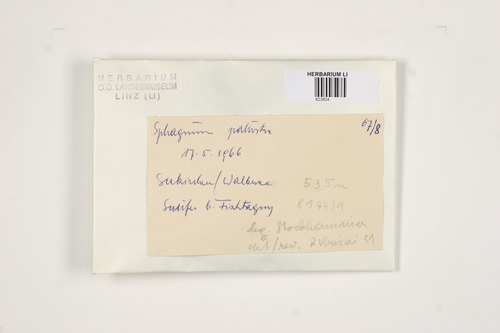 HERBARIUM
O.Ö. LANDESMUSEUM
LINZ (LI)
HERBARIUM LI
623834
67/8
Sphagnum palustre
17.5.1966
Seekirchen/Wallersee 535m
Seeufer b. Fischtaging 8144/1
leg. Stockhammer
det/rev. 81